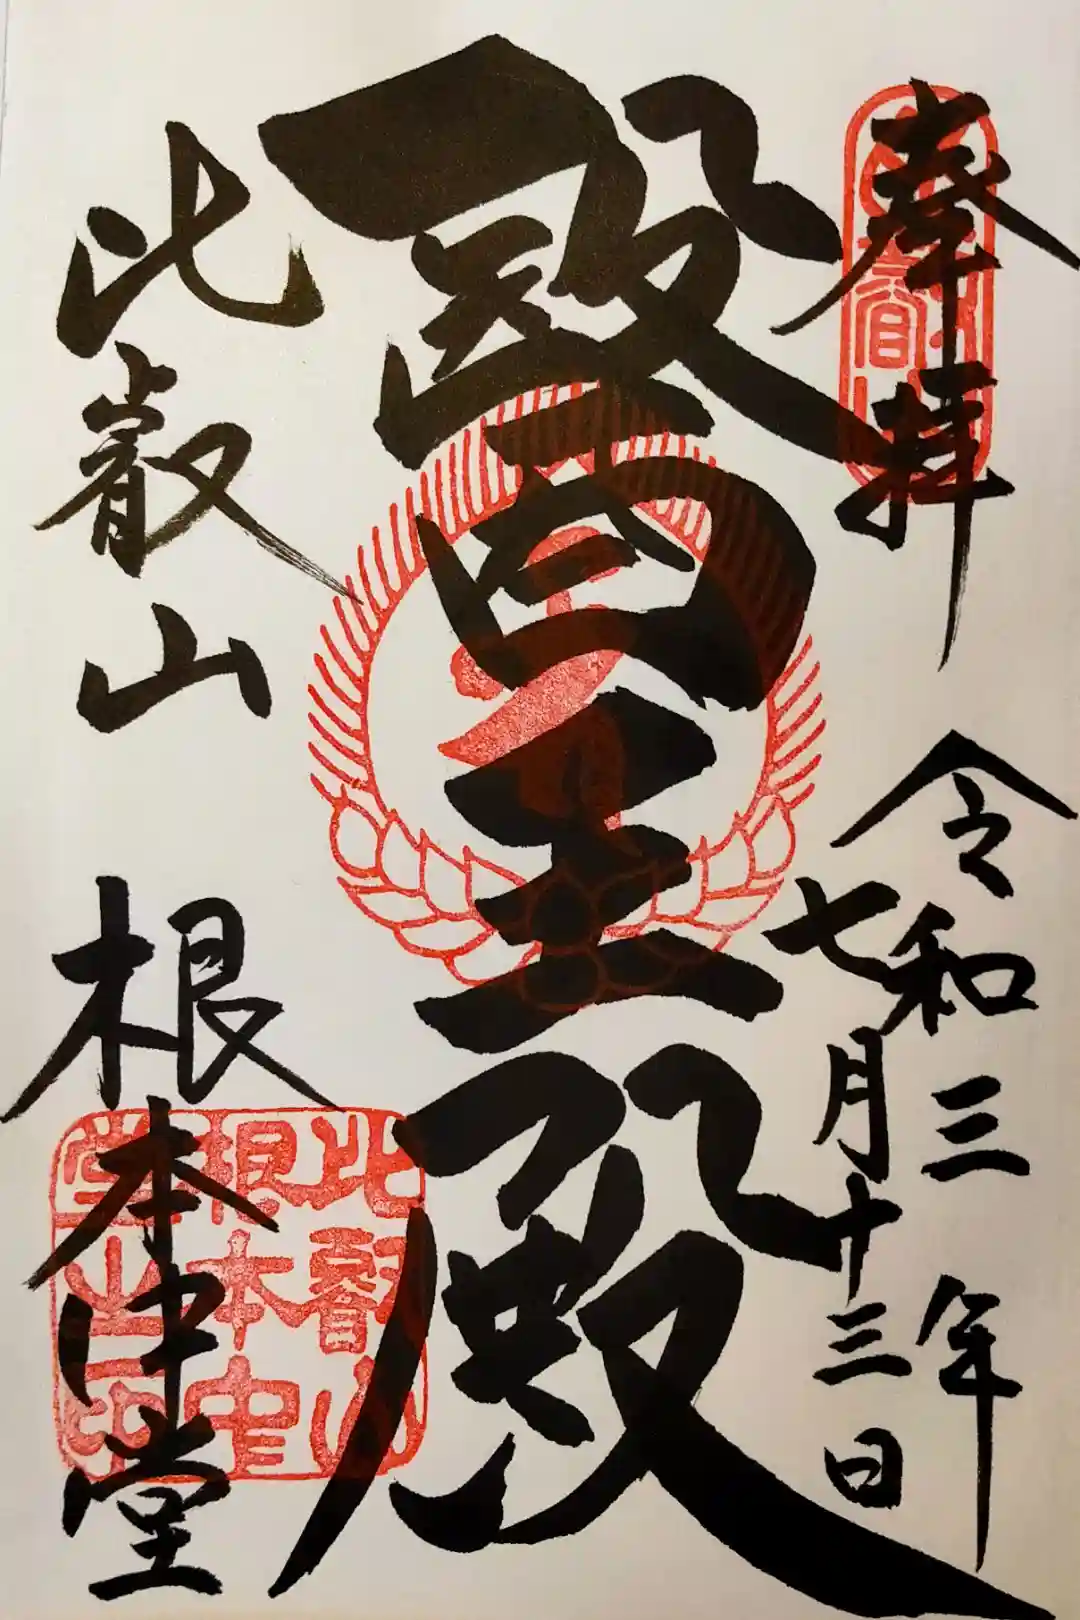 奉拝
令和三年
七月十三日
醫王殿
比叡山 根本中堂
比叡山
根本中
堂之印